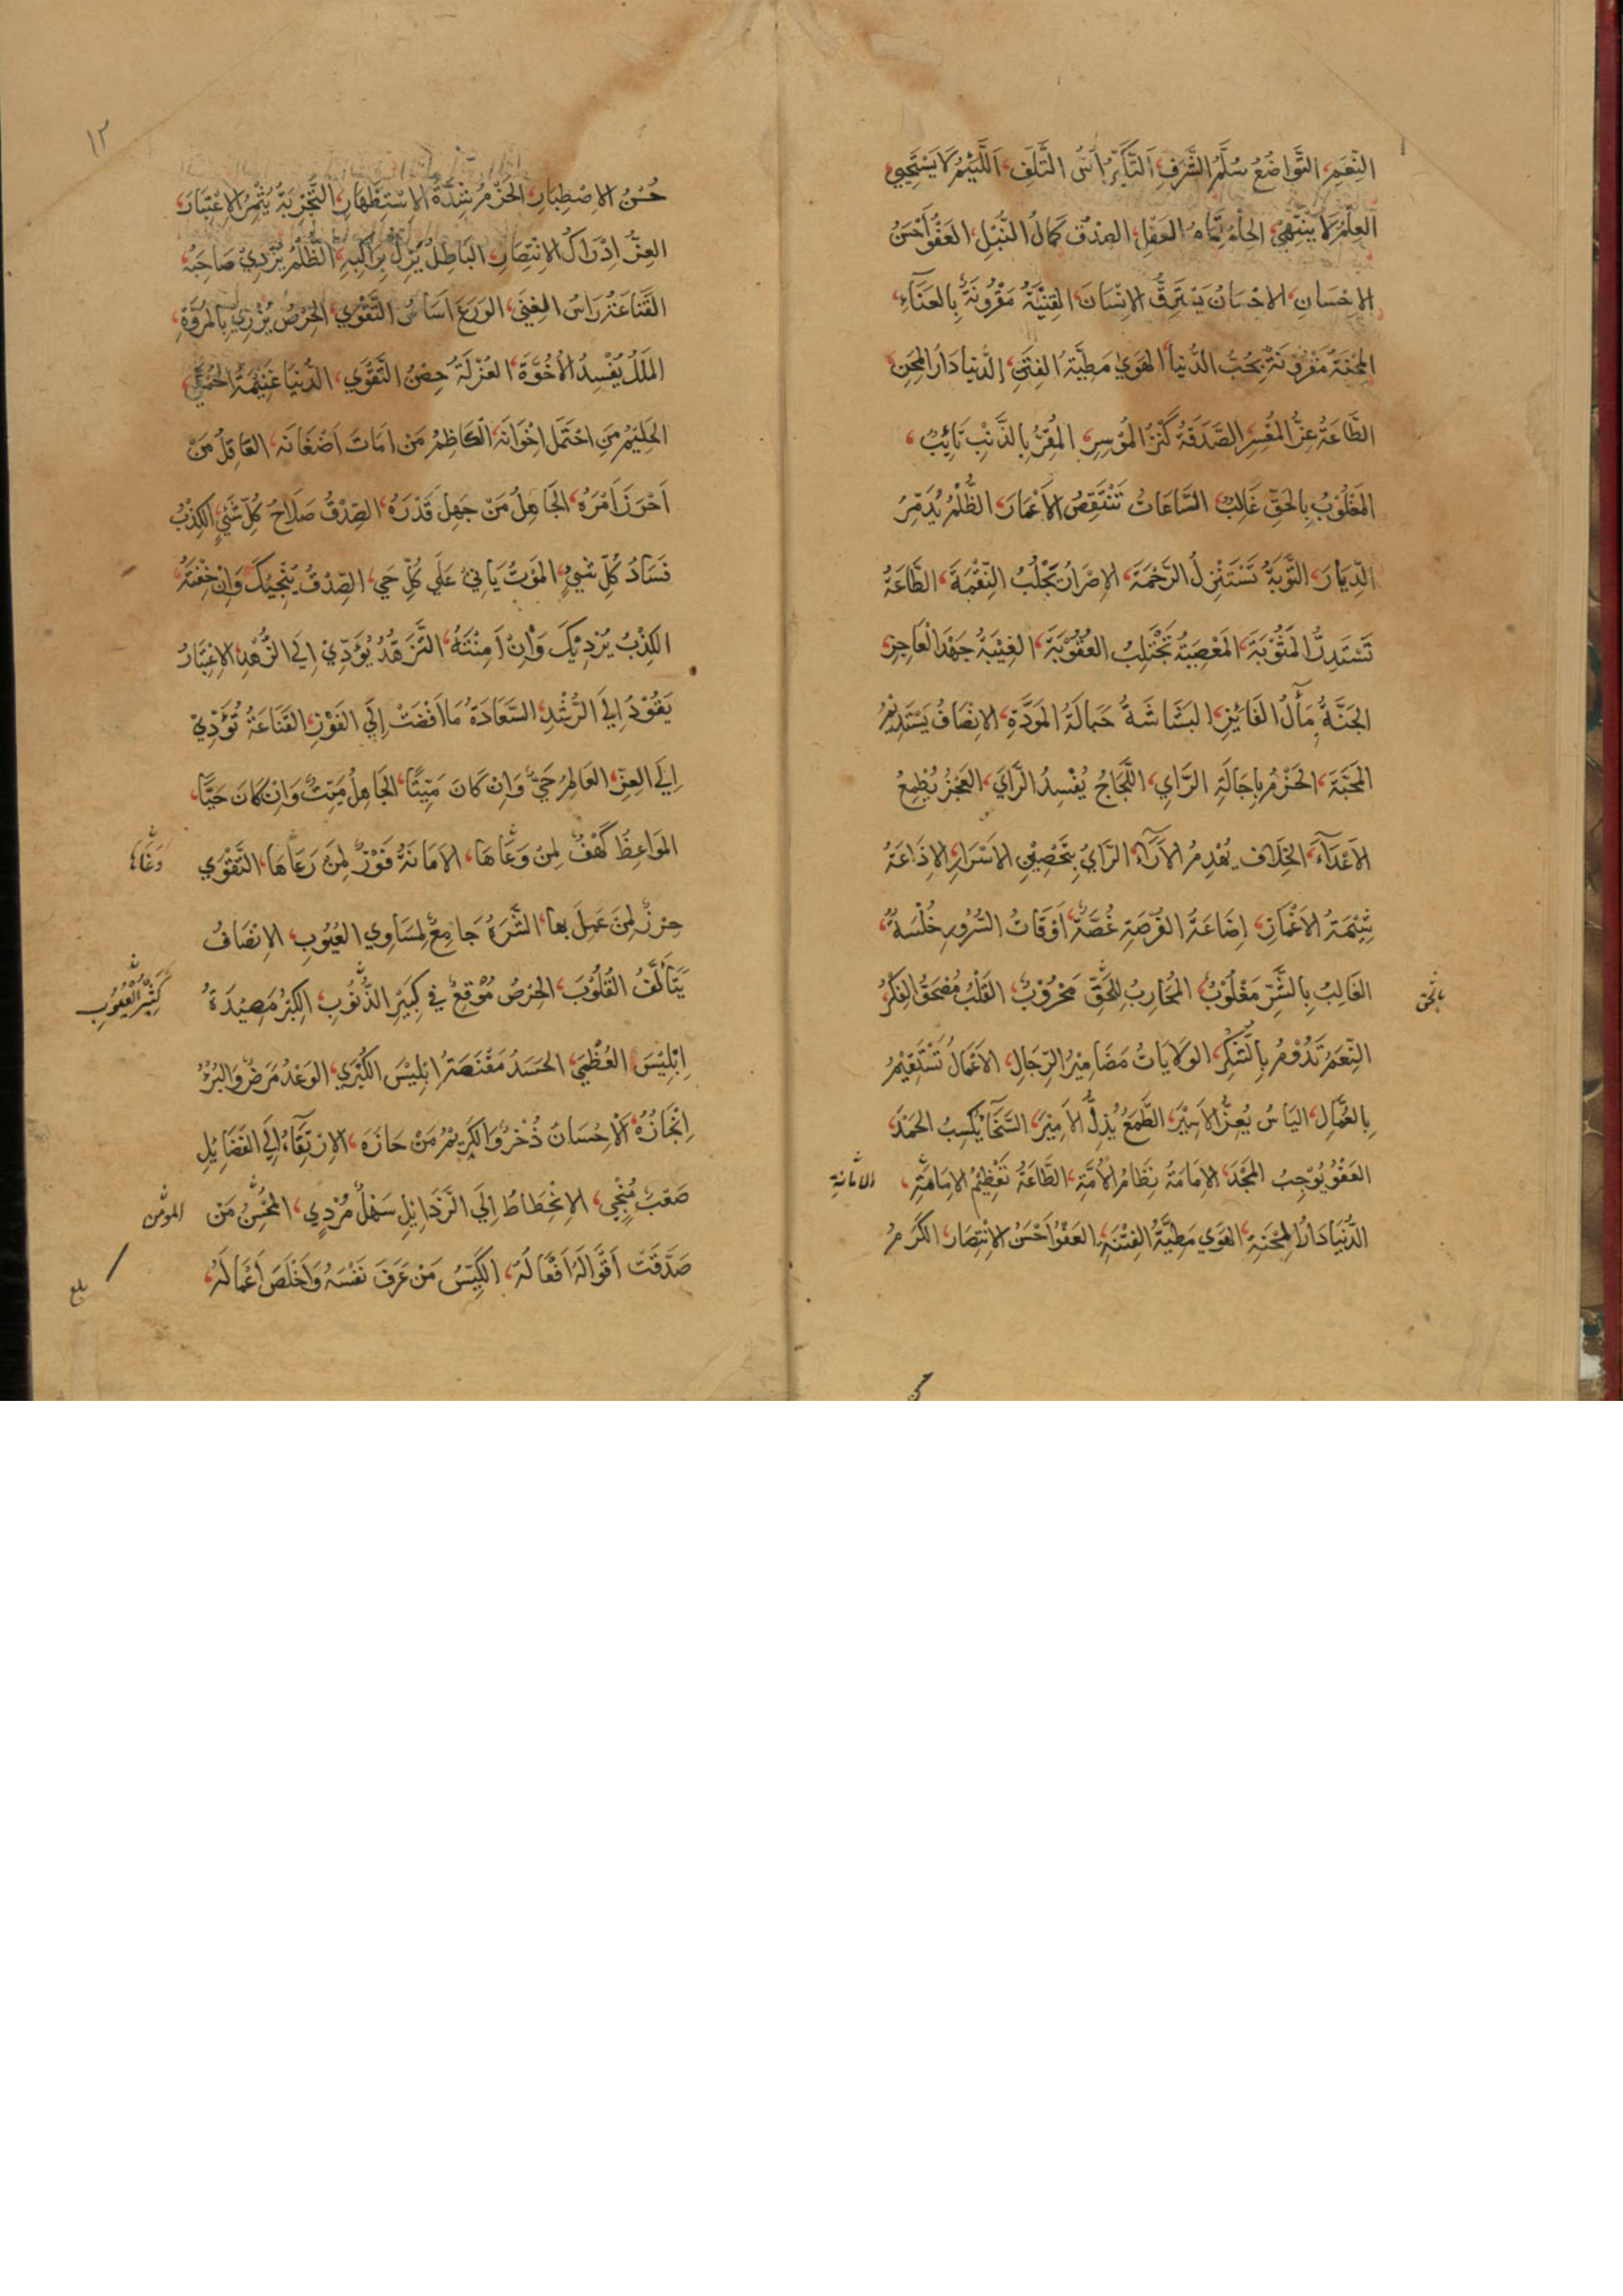 النِّعَمِ، التَّوَاضُعُ سُلَّمُ الشَّرَفِ، اَلتَّكَبُّرُ اُسُّ التَّلَفِ، اَللَّئِيْمُ لَا يَسْتَحْيِي
العِلْمُ لَا يَنْتَهِي، الحِلْمُ تَمَامُ العَقْلِ، الصِدْقُ كَمَالُ النُّبْلِ، العَفْوُ اَحْسَنُ
الاِحْسَانِ، الاِحْسَانُ يَسْتَرِقُّ الاِنْسَانَ، القِنْيَةُ مَقْرُونَةٌ بِالعَنَآءِ،
المِحْنَةُ مَقْرُوْنَةٌ بِحُبِّ الدُّنْيَا، الهَوٰي مَطِيَّةُ الفِتَنِ، الدُّنيا دَارُ المِحَنِ
الطَّاعَةُ عِزُّ المُعْسِرِ، الصَّدَقَةُ كَنْزُ المُوْسِرِ، المُقِرُّ بِالذَّنْبِ تَايِبٌ،
المَغْلُوْبُ بِالحَقِّ غَالِبٌ، السَّاعَاتُ تَنْتَقِصُ الاَعْمَارَ، الظُّلْمُ يُدَمِّرُ
الدِّيَارَ، التَّوْبَةُ تَسْتَنْزِلُ الرَّحْمَةَ، الاِصْرَارُ يَجْلُبُ النِّقْمَةَ، الطَّاعَةُ
تَسْتَدِرُّ المَثُوْبَةَ، المَعْصِيَةُ تَجْتَلِبُ العُقُوْبَةَ، الغِيْبَةُ جَهْدُ العَاجِزِ،
الجَنَّةُ مَآلُ الفَائِزِ، البَشَاشَةُ حِبَالَةُ المَوَدَّةِ، الاِنْصَافُ يَسْتَدِيْمُ
المَحَبَّةَ، الحَزْمُ بِاِجَالَةِ الرَّايِ، اللَّجَاجُ يُفْسِدُ الرَّايَ، العَجْزُ يُطْمِعُ
الاَعْدَآءَ، الخِلَافُ يَهْدِمُ الاَرَآءَ، الرَّايُ بِتَحْصِيْنِ الاَسْرَارِ، الاِذَاعَةُ
شِيْمَةُ الاَغْمَارِ، اِضَاعَةُ الفُرْصَةِ غُصَّةٌ، اَوْقَاتُ السُّرُورِ خُلْسَةٌ،
الغَالِبُ بِالشَّرِّ مَغْلُوْبٌ، المُحَارِبُ لِلحَقِّ مَحْرُوْبٌ، القَلْبُ مُصْحَفُ الفِكْرِ
النِّعَمُ تَدُوْمُ بِالشُّكْرِ، الوَلَايَاتُ مَضَامِيْرُ الرِّجَالِ، الاَعْمَالُ تَسْتَقِيْمُ
بِالعُمَّالِ، اليَاسُ يُعِزُّ الاَسِيْرَ، الطَّمَعُ يُذِلُّ الاَمِيْرَ، السَّخَآءُ يَكْسِبُ الحَمْدَ،
العَفْوُ يُوْجِبُ المَجْدَ، الاِمَامَةُ نِظَامُ الاُمَّةِ، الطَّاعَةُ تَعْظِيْمُ الاِمَامَةِ،
الامانة
الدُّنْيَا دَارُ المِحْنَةِ، الهَوٰي مَطِيَّةُ الفِتْنَةِ، العَفْوُ اَحْسَنُ الاِنْتِصَارِ، الكَرَمُ
١٢
حُسْنُ الاِصْطِبَارِ، الحَزْمُ شِدَّةُ الاِسْتِظْهَارِ، التَّجْرِبَةُ يُثْمِرُ الاِعْتِبَارَ،
العِزُّ اِدْرَاكُ الاِنْتِصَارِ، البَاطِلُ يَزِلُّ بِرَاكِبِهِ، الظُّلْمُ يُرْدِيْ صَاحِبَهُ،
القَنَاعَةُ رَاسُ الغِنَي، الوَرَعُ اَسَاسُ التَّقْوَي، الحِرْصُ يُزْرِي بِالمُرُوَّةِ،
المَلَلُ يُفْسِدُ الاُخُوَّةَ، العُزْلَةُ حِصْنُ التَّقْوَي، الدُّنْيَا غَنِيْمَةُ الحَمْقَي
الحَلِيْمُ مَنِ احْتَمَلَ اِخْوَانَهُ، الكَاظِمُ مَنْ اَمَاتَ اَضْغَانَه، العَاقِلُ مَنْ
اَحْرَزَ اَمْرَهُ، الجَاهِلُ مَنْ جَهِلَ قَدْرَهُ، الصِّدْقُ صَلَاحُ كُلِّ شَيْءٍ، الكِذْبُ
فَسَادُ كُلِّ شَيْءٍ، المَوْتُ يَاتِيْ عَلَي كُلِّ حَيٍ، الصِّدْقُ يُنْجِيْكَ وَاِنْ خِفْتَهُ،
الكِذْبُ يُرْدِيْكَ وَاِنْ اَمِنْتَهُ، التَّزَهُّدُ يُؤَدِّيْ اِلَي الزُّهْدِ، الاِعْتِبَارُ
يَقُوْدُ اِلَي الرُّشْدِ، السَّعَادَةُ مَا اَفْضَتْ اِلَي الفَوْزِ، القَنَاعَةُ تُؤَدِّيْ
اِلَي العِزِّ، العَالِمُ حَيٌّ وَاِنْ كَانَ مَيِّتًا، الجَاهِلُ مَيِّتٌ وَاِنْ كَانَ حَيًّا،
المَوَاعِظُ كَهْفٌ لِمَنْ وَعَاهَا، الاَمَانَةُ فَوْزٌ لِمَنْ رَعَاهَا، التَّقْوَي
حِرْزٌ لِمَنْ عَمِلَ بِهَا، الشَّرَهُ جَامِعٌ لِمَسَاوِي العُيُوْبِ، الاِنْصَافُ
يَتَأَلَّفُ القُلُوْبَ، الحِرْصُ مُوْقِعٌ فِي كَبِيْرِ الذُّنُوْبِ، الكِبْرُ مَصِيْدَةُ
اِبْلِيْسَ العُظْمَي، الحَسَدُ مَقْنَصَةُ اِبْلِيْسَ الكُبْرَي، الوَعْدُ مَرَضٌ وَالبُرْءُ
اِنْجَازُهُ، اَلْاِحْسَانُ ذُخْرٌ وَالكَرِيْمُ مَنْ حَازَهُ، الاِرْتِقَاءُ اِلَي الفَضَائِلِ
صَعْبٌ مُنْجِي، الاِنْحِطَاطُ اِلَي الرَّذَائِلِ سَهْلٌ مُرْدِي، المُحْسِنُ مَنْ
المومن
صَدَّقَتْ اَقْوَالَهُ اَفْعَالُهُ، الكَيِّسُ مَنْ عَرَفَ نَفْسَهُ وَاَخْلَصَ اَعْمَالَهُ،
بلغ